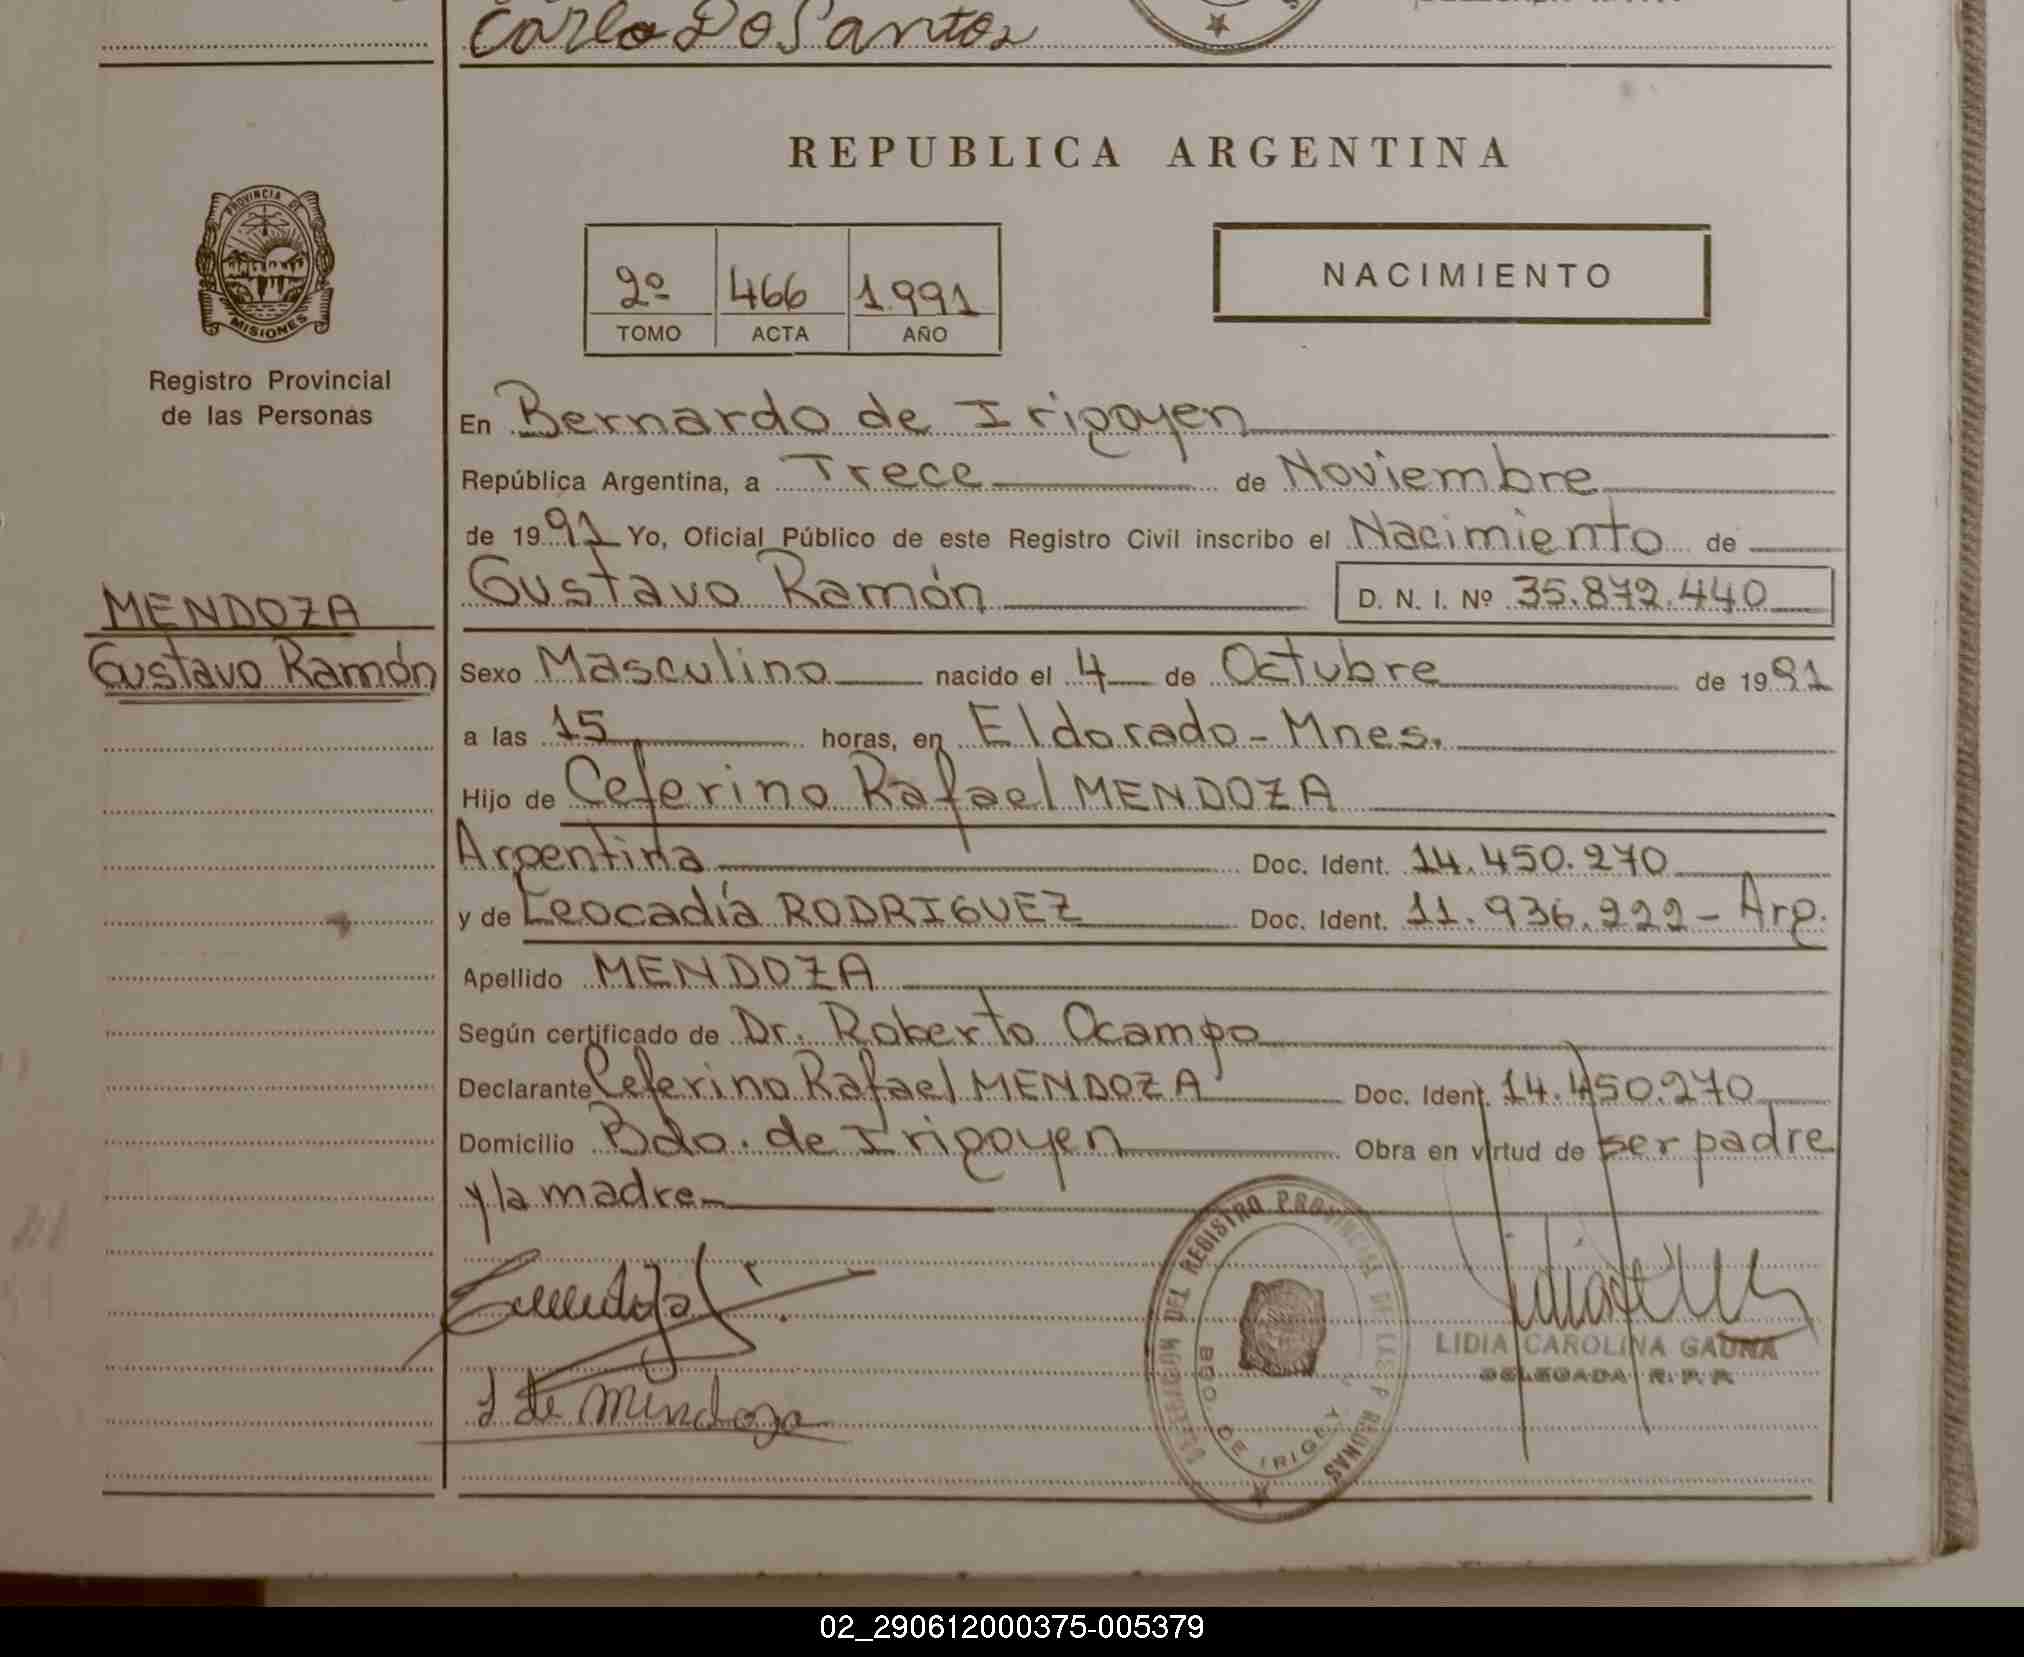 Carlo Do Santos
REPUBLICA ARGENTINA
PROVINCIA DE
MISIONES
Registro Provincial
de las Personas
2º 466 1.991
TOMO ACTA AÑO
NACIMIENTO
En Bernardo de Irigoyen
República Argentina, a Trece de Noviembre
de 1991 Yo, Oficial Público de este Registro Civil inscribo el Nacimiento de
Gustavo Ramón D. N. I. Nº 35.872.440
MENDOZA
Gustavo Ramón
Sexo Masculino nacido el 4 de Octubre de 1991
a las 15 horas, en Eldorado - Mnes.
Hijo de Ceferino Rafael MENDOZA
Argentina Doc. Ident. 14.450.270
y de Leocadía RODRIGUEZ Doc. Ident. 11.936.222 - Arg.
Apellido MENDOZA
Según certificado de Dr. Roberto Ocampo
Declarante Ceferino Rafael MENDOZA Doc. Ident. 14.450.270
Domicilio Bdo. de Irigoyen Obra en virtud de ser padre
y la madre
DEL REGISTRO PROVINCIAL DE LAS PERSONAS
BDO DE IRIGOY
LIDIA CAROLINA GAUNA
DELEGADA R. P. P.
L de Mendoza
02_290612000375-005379